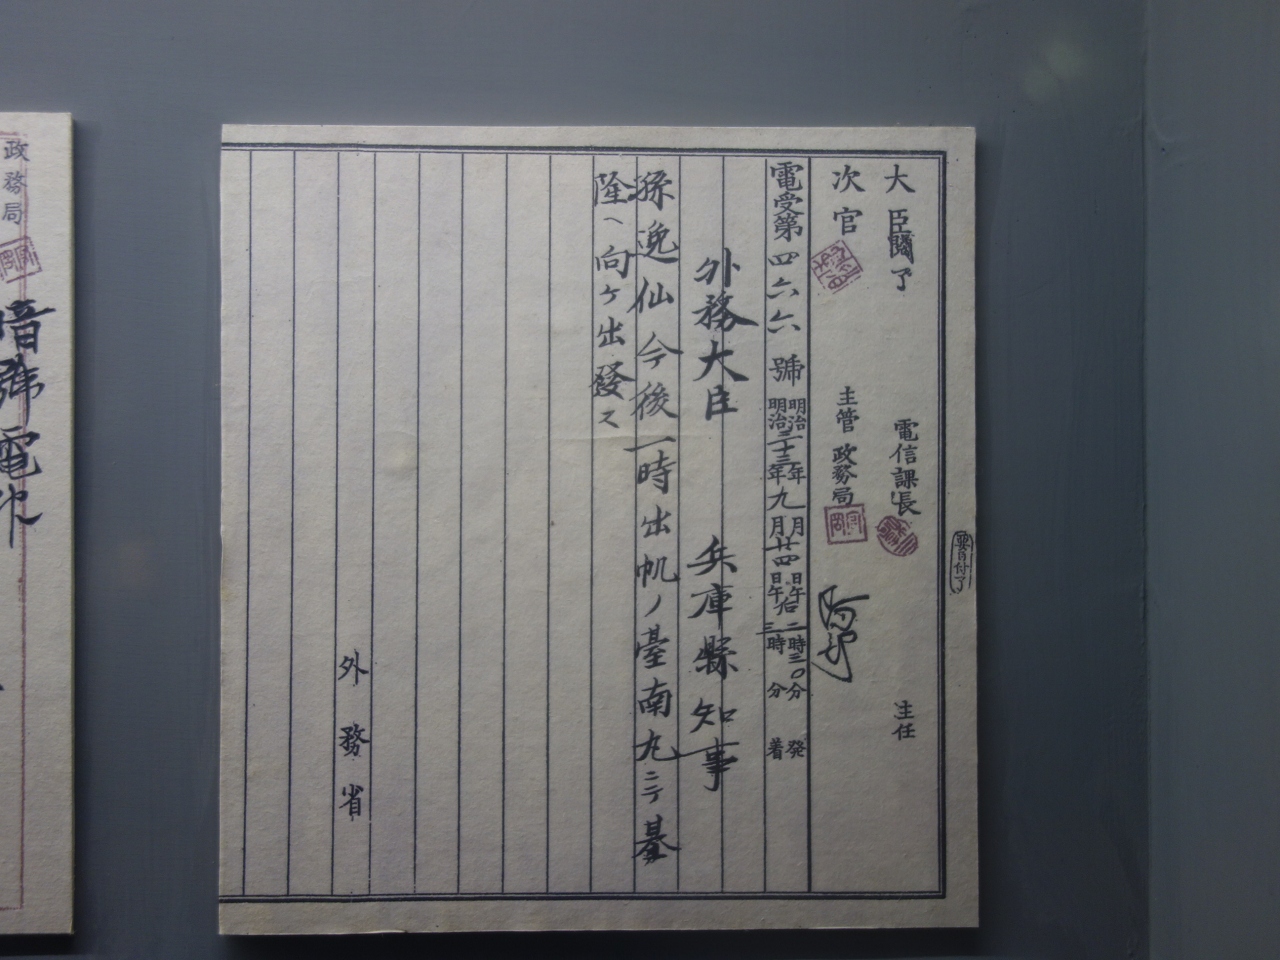 大臣閲了
電信課長
主任
次官
主管 政務局
電受第四六六號
明治 年 月 日午后二時三〇分 発
明治三十三年九月廿四日午 三時 分 着
外務大臣 兵庫縣知事
孫逸仙今後一時出帆ノ臺南丸ニテ基
隆ヘ向ケ出發ス
外務省
政務局
暗號電